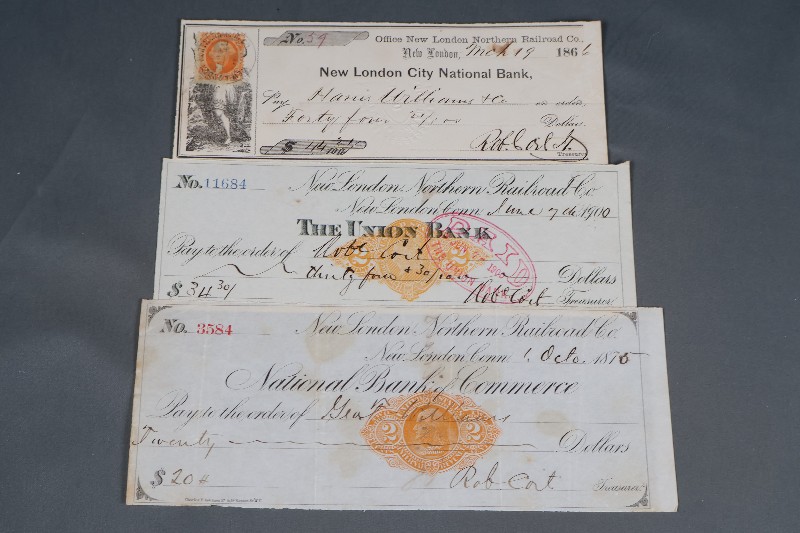 No. 59
Office New London Northern Railroad Co.,
New London, Mch 19 1866
New London City National Bank,
Pay Williams & Co or order,
Forty four 21/100 Dollars.
$ 44 21/100 Rob. Coit Jr.
Treasurer
No. 11684 New London Northern Railroad Co
New London Conn June 7th 1900
THE UNION BANK
Pay to the order of Robt Coit
thirty four & 30/100 Dollars
$ 34 30/ Rob Coit Treasurer
PAID
No. 3584 New London Northern Railroad Co
New London Conn 1 Octo 1875
National Bank of Commerce
Pay to the order of Geo
Twenty Dollars
2 2
$ 20 Rob Coit Treasurer